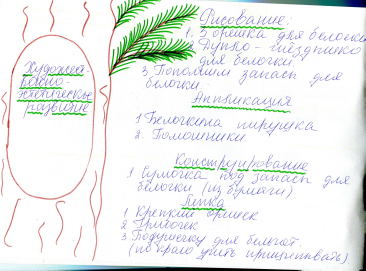 Художест
венно
эстетическое
развитие
Рисование:
1. 3 орешка для белочки
2 Дупло - гнёздышко
для белочки
3 Пополним запасы для
белочки
Аппликация
1 Белочкина пирушка
2. Помошники
Конструирование
1 Сумочка под запасы для
белочки (из бумаги)
Лепка
1 Крепкий орешек
2 Грибочек
3 Подушечку для бельчат.
(по краю учить прищипывать)